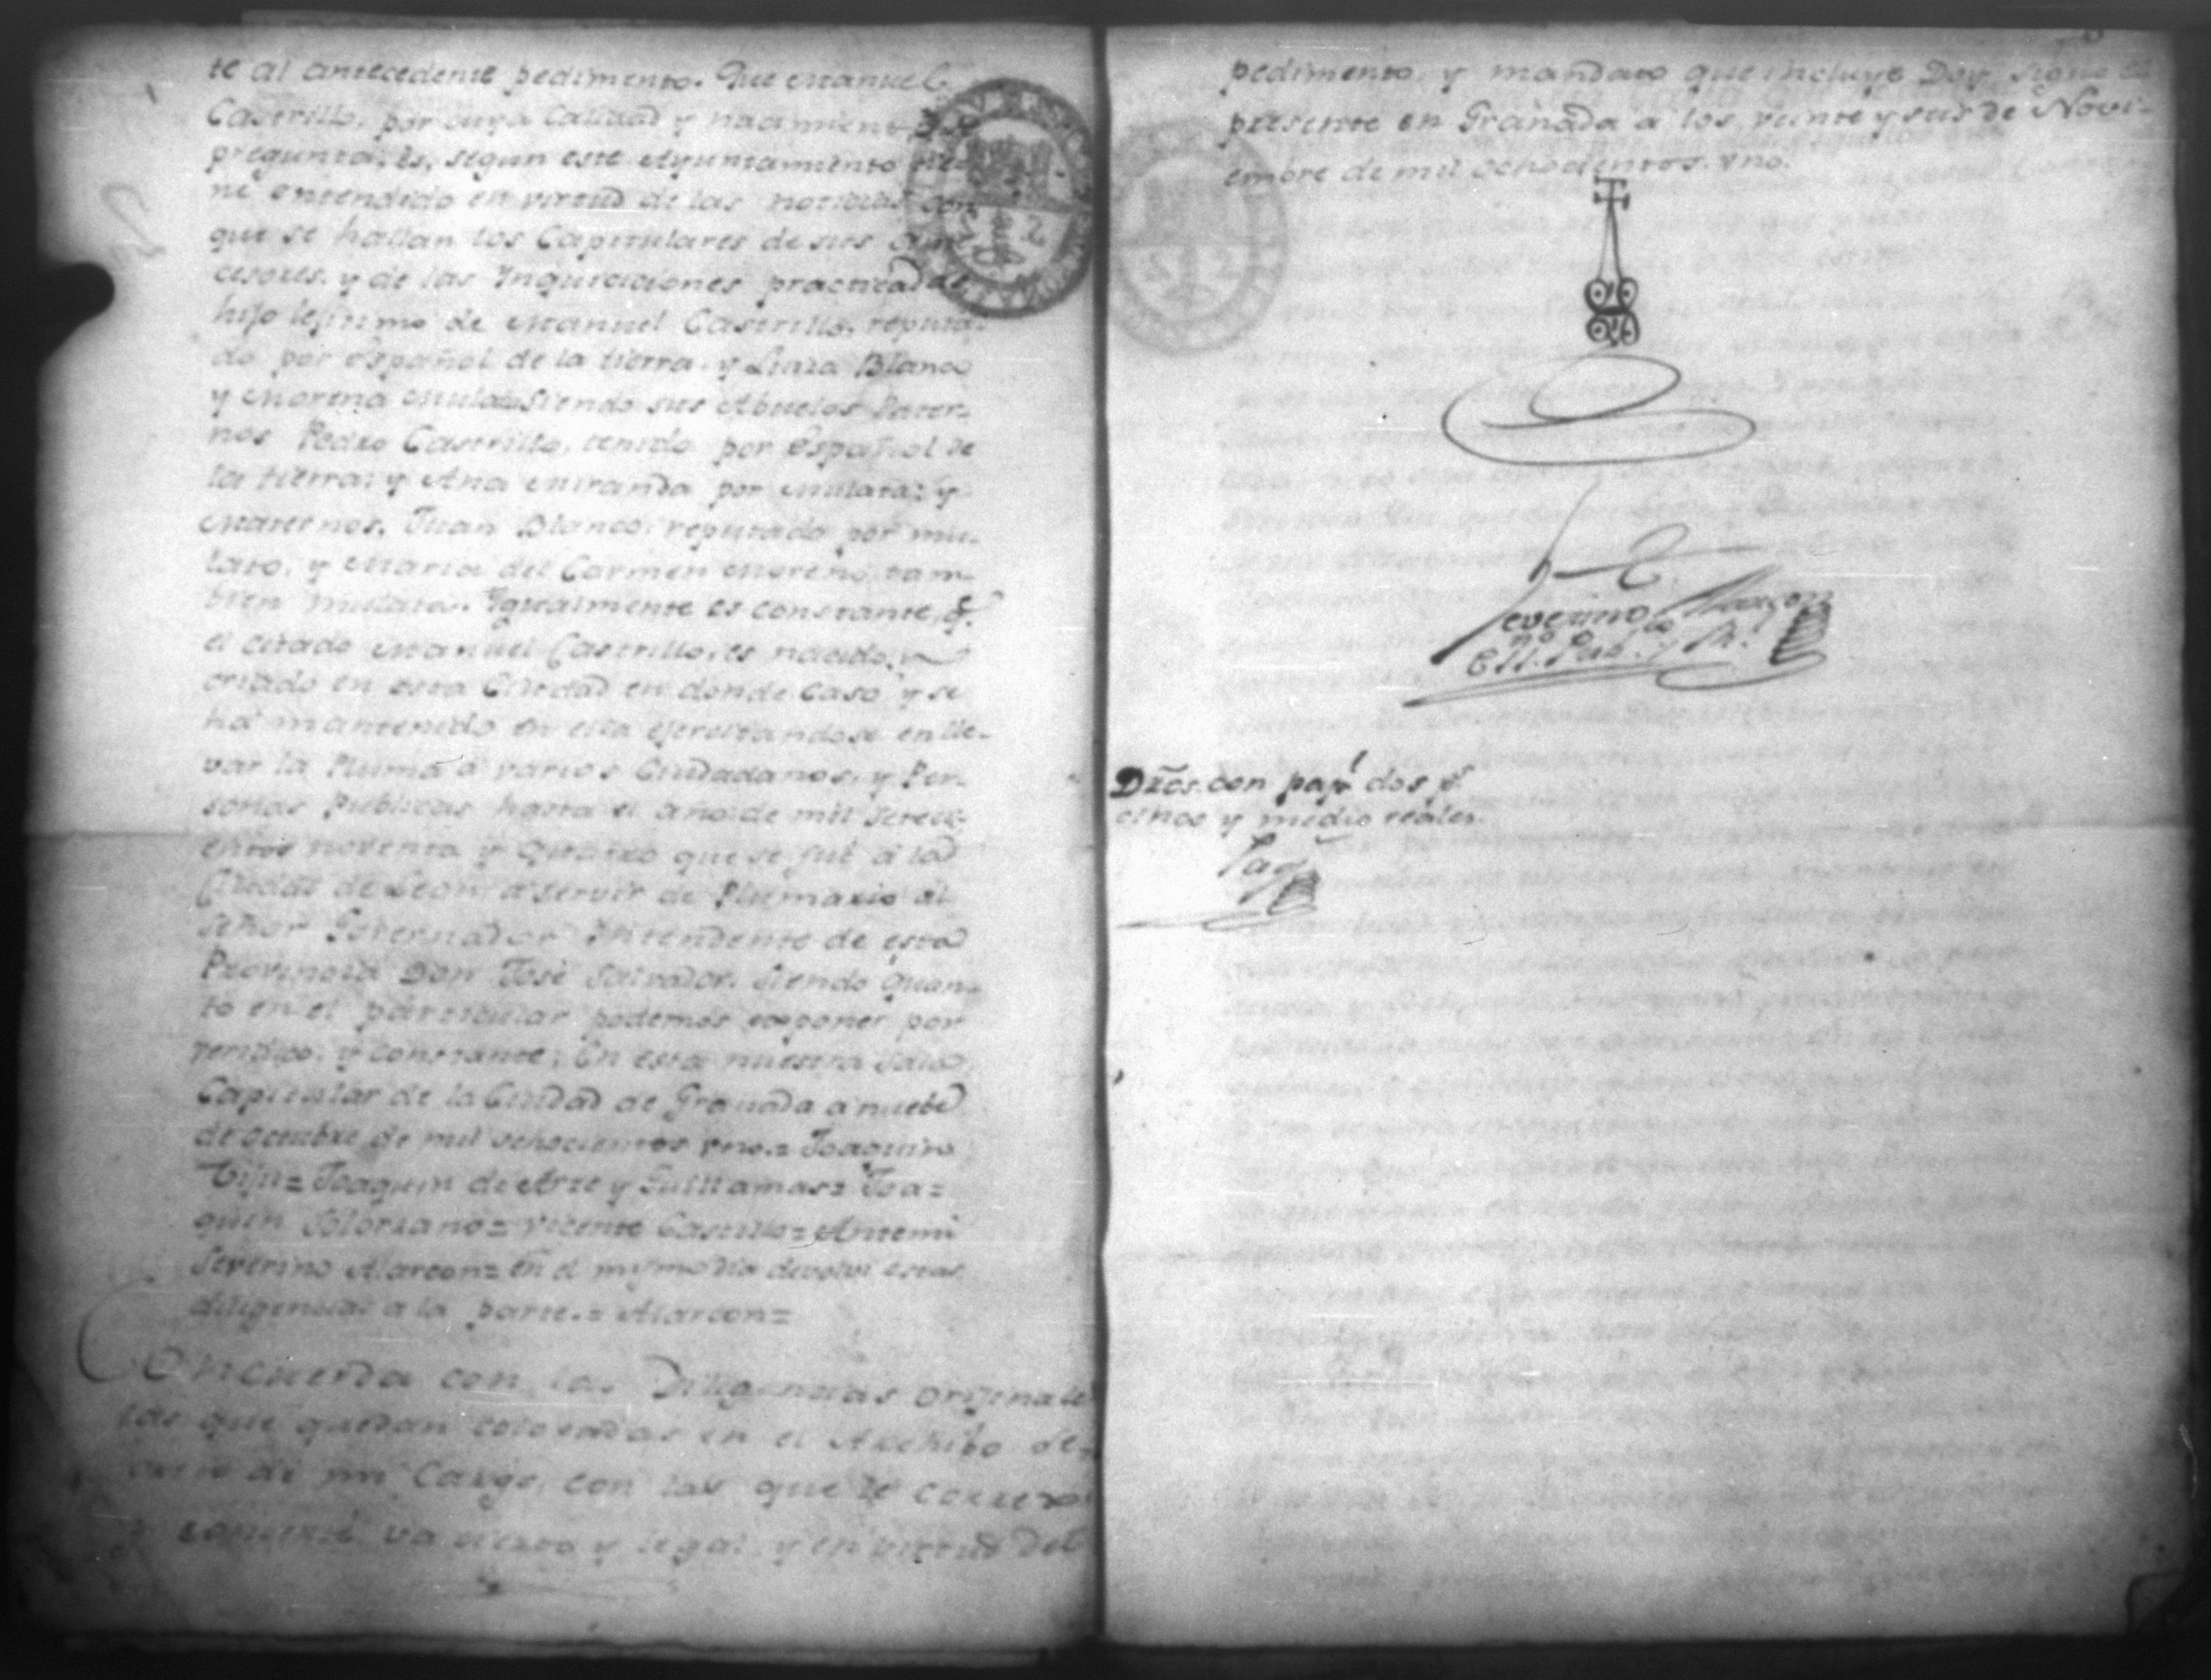 te al antecedente pedimento. Que Manuel
Castrillo, por cuya Calidad y nacimiento se
pregunta, es, segun este Ayuntamiento tie-
ne entendido en virtud de las noticias con
que se hallan los Capitulares de sus An-
cesores, y de las Inquiciciones practicadas
hijo lejitimo de Manuel Castrillo, reputa-
do por español de la tierra, y Blanco
y Morena Mulata siendo sus Abuelos Pater-
nos Pedro Castrillo, tenido por Español de
la tierra; y Ana Miranda por Mulata; y
Maternos, Juan Blanco reputado por mu-
lato, y Maria del Carmen Moreno, tam-
bien mulata. Ygualmente es constante, q.
el citado Manuel Castrillo, es nacido, y
criado en esta Ciudad en donde caso y se
ha mantenido en ella ejercitandose en lle-
var la Pluma a varios Ciudadanos, y Per-
sonas Publicas hasta el año de mil setec-
entos noventa y Quatro que se fué a la
Ciudad de Leon a servir de Plumario al
Señor Governador Intendente de esta
Provincia Don José Salvador. Siendo quan-
to en el particular podemos exponer por
veridico, y constante. En esta nuestra Sala
Capitular de la Ciudad de Granada a nuebe
de octubre de mil ochocientos uno.= Joaquin
Vijil= Joaquin de Arze y = Joa=
quin Solorzano= Vicente Castillo= Antemi
Severino Alarcon= En el mismo dia devolvi estas
diligencias a la parte.= Alarcon=
Concuerda con las Diligencias orijinales
las que quedan colocadas en el Archibo de
de mi Cargo, con las que le correxi
y concerté va cierto y legal, y en virtud del
pedimento, y mandato que incluye Doy, signo el
presente en Granada a los veinte y seis de Novi-
embre de mil ochocientos uno.
Severino Alarcon
Ess.no Pub.co y R.l
Dr͞os. con pap.l dos p.s
cinco y medio reales.